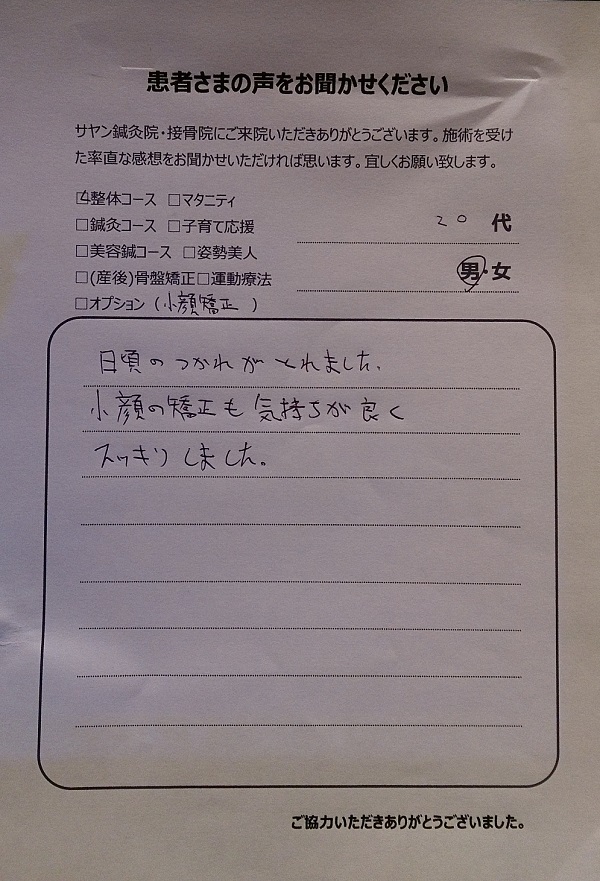 患者さまの声をお聞かせください
サヤン鍼灸院・接骨院にご来院いただきありがとうございます。施術を受け
た率直な感想をお聞かせいただければ思います。宜しくお願い致します。
☑整体コース □マタニティ
□鍼灸コース □子育て応援
20 代
□美容鍼コース □姿勢美人
□(産後)骨盤矯正□運動療法
男・女
□オプション（小顔矯正）
日頃のつかれがとれました。
小顔の矯正も気持ちが良く
スッキリしました。
ご協力いただきありがとうございました。